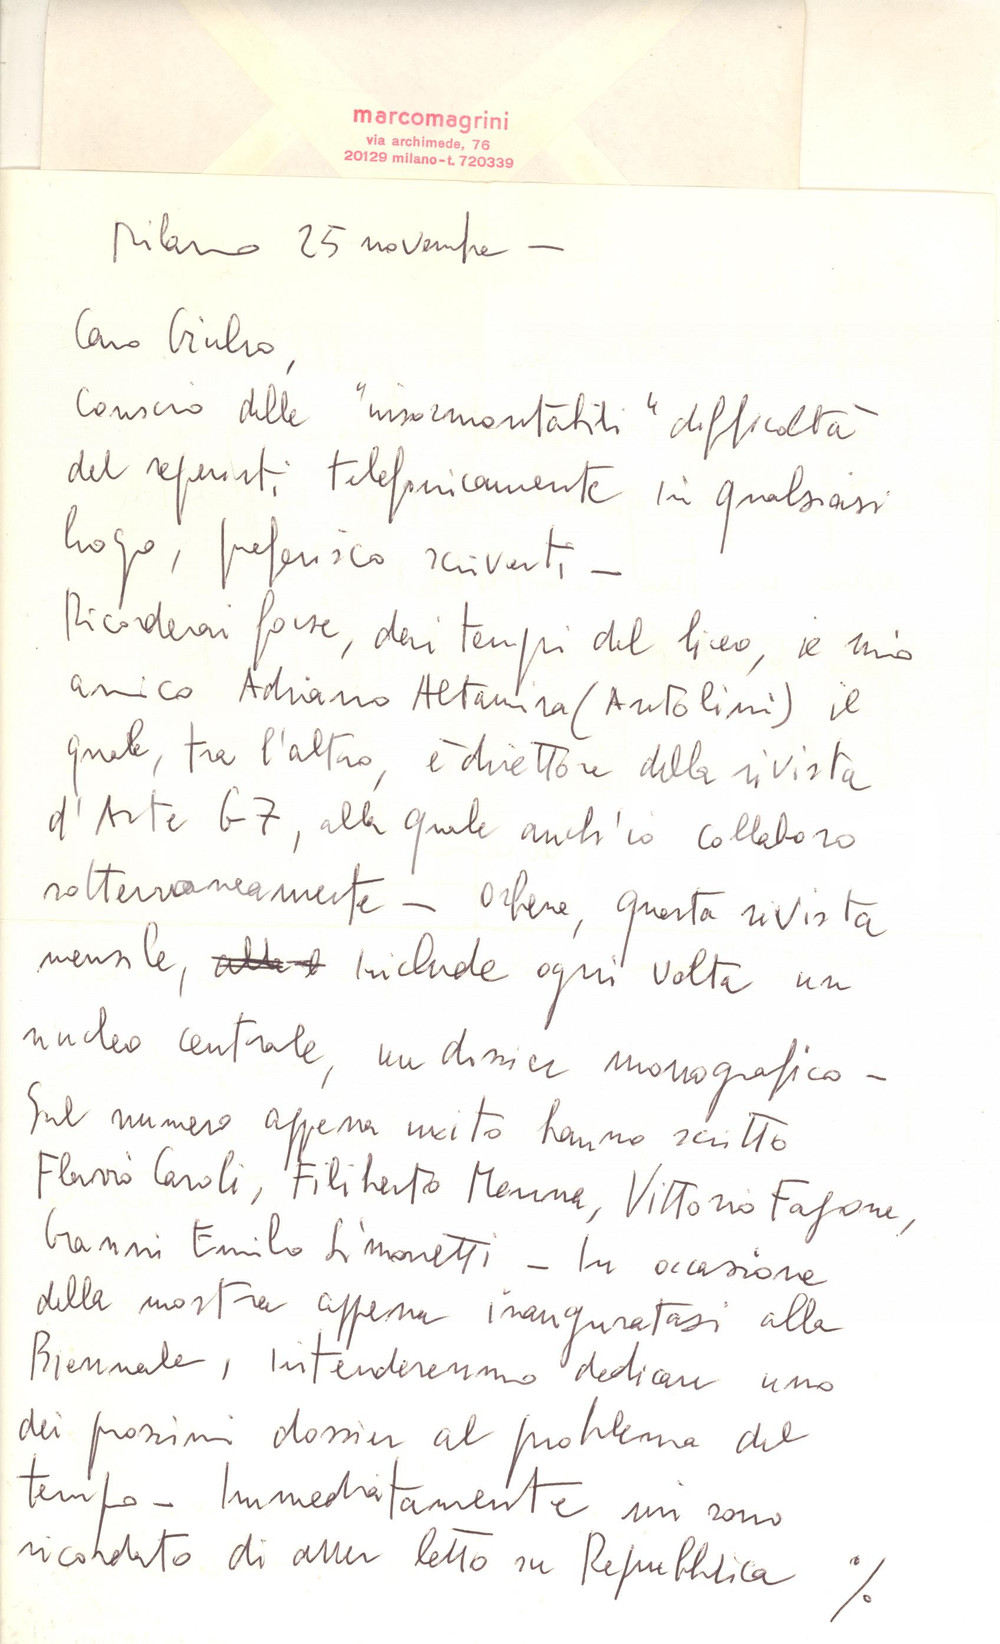 marcomagrini
via archimede, 76
20129 milano - t. 720339
Milano 25 novembre —
Caro Giulio,
conscio delle "insormontabili" difficoltà
del reperirti telefonicamente in qualsiasi
luogo, preferisco scriverti —
Ricorderai forse, dai tempi del liceo, il mio
amico Adriano Altamira (Antolini) il
quale, tra l'altro, è direttore della rivista
d'Arte G7, alla quale anch'io collaboro
sotterraneamente — Orbene, questa rivista
mensile, include ogni volta un
nucleo centrale, un dossier monografico —
Sul numero appena uscito hanno scritto
Flavio Caroli, Filiberto Menna, Vittorio Fagone,
Gianni Emilio Simonetti — In occasione
della mostra appena inauguratasi alla
Biennale, intenderemmo dedicare uno
dei prossimi dossier al problema del
tempo — Immediatamente mi sono
ricordato di aver letto su Repubblica %